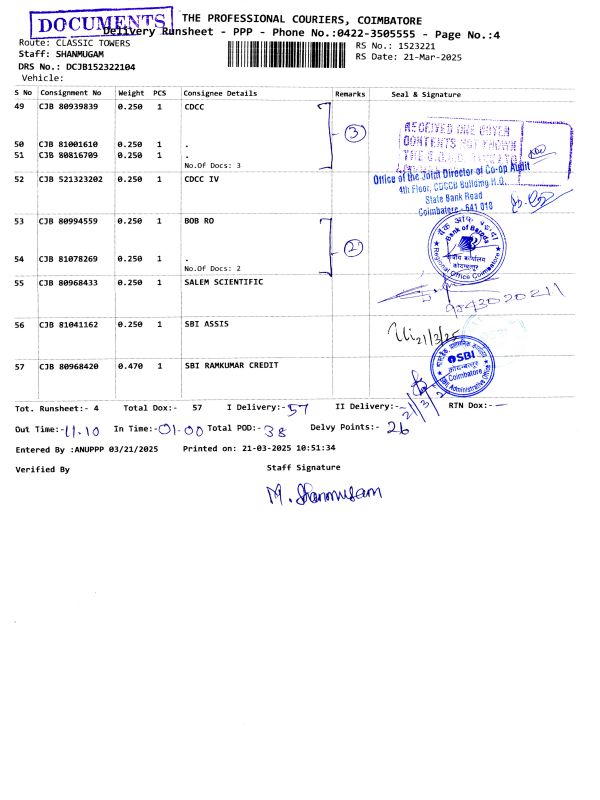 DOCUMENTS
THE PROFESSIONAL COURIERS, COIMBATORE
Delivery Runsheet - PPP - Phone No.:0422-3505555 - Page No.:4
Route: CLASSIC TOWERS
RS No.: 1523221
Staff: SHANMUGAM
RS Date: 21-Mar-2025
DRS No.: DCJB152322104
Vehicle:
S No Consignment No Weight PCS Consignee Details Remarks Seal & Signature
49 CJB 80939839 0.250 1 CDCC
3
RECEIVED ONE COVER
CONTENTS NOT KNOWN
50 CJB 81001610 0.250 1 .
51 CJB 80816709 0.250 1 .
No.Of Docs: 3
52 CJB 521323202 0.250 1 CDCC IV
Office of the Joint Director of Co-op Audit
4th Floor, CDCCB Building H.O.
State Bank Road
Coimbatore - 641 018
53 CJB 80994559 0.250 1 BOB RO
2
बैंक ऑफ़ बड़ौदा
Bank of Baroda
क्षेत्रीय कार्यालय
कोयम्बतूर
Regional Office Coimbatore
54 CJB 81078269 0.250 1 .
No.Of Docs: 2
55 CJB 80968433 0.250 1 SALEM SCIENTIFIC
9543020211
56 CJB 81041162 0.250 1 SBI ASSIS
21/3/25
57 CJB 80968420 0.470 1 SBI RAMKUMAR CREDIT
SBI
कोयम्बत्तूर
Coimbatore
SBI Administrative Office
21/3/2
Tot. Runsheet:- 4 Total Dox:- 57 I Delivery:- 57 II Delivery:- — RTN Dox:- —
Out Time:- 11.10 In Time:- 01.00 Total POD:- 38 Delvy Points:- 26
Entered By :ANUPPP 03/21/2025 Printed on: 21-03-2025 10:51:34
Verified By Staff Signature
M. Shanmugam